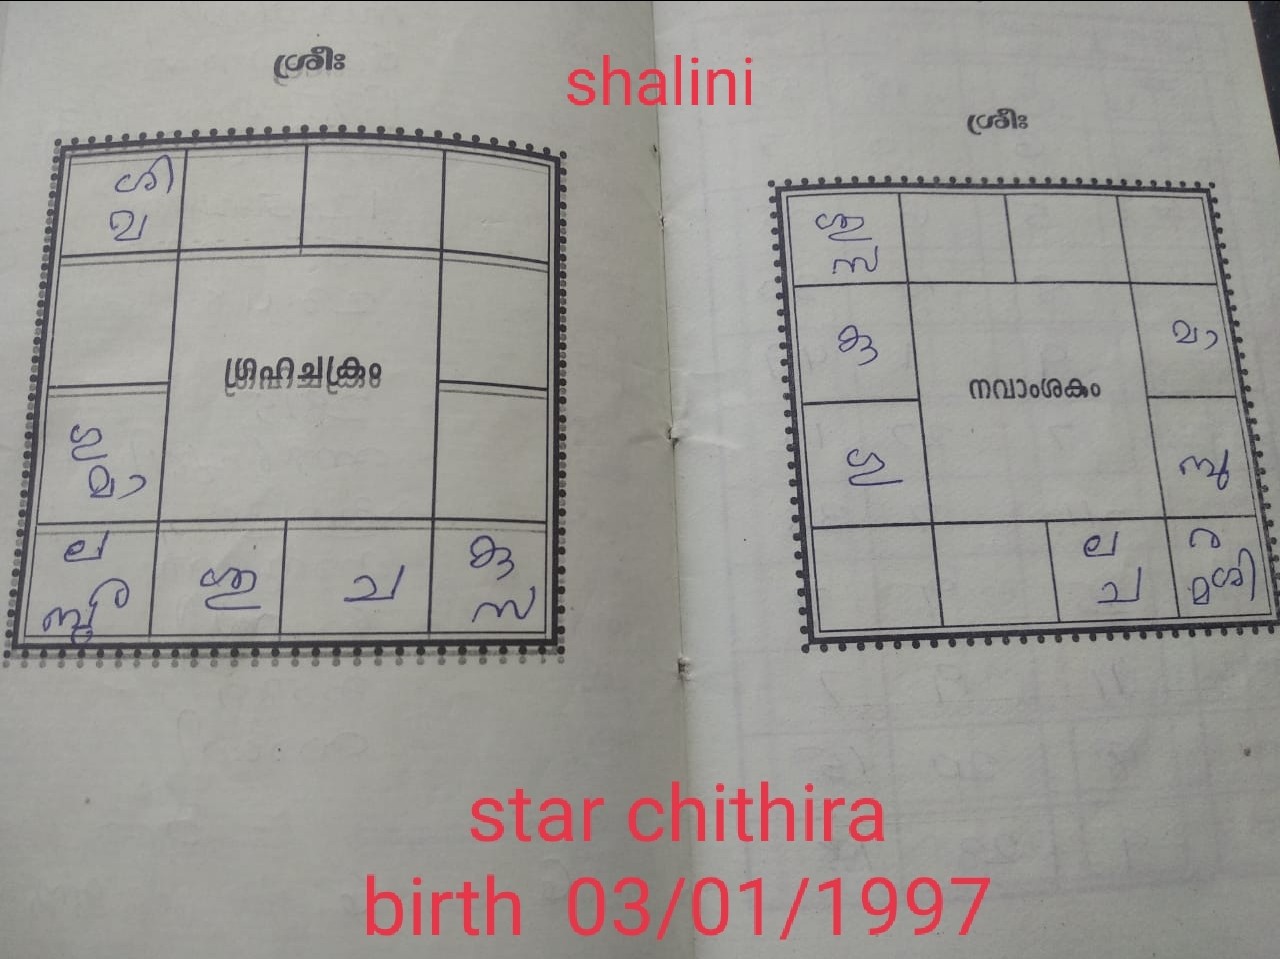 ശ്രീഃ
shalini
ശ്രീഃ
ശി
വ
ഗ്രഹചക്രം
ഗു
മാ
ല
ര
ശു
ച
കു
സ
ശു
സ
കു
മാ
നവാംശകം
ഗു
ല
ച
ര
മ ശി
star chithira
birth 03/01/1997